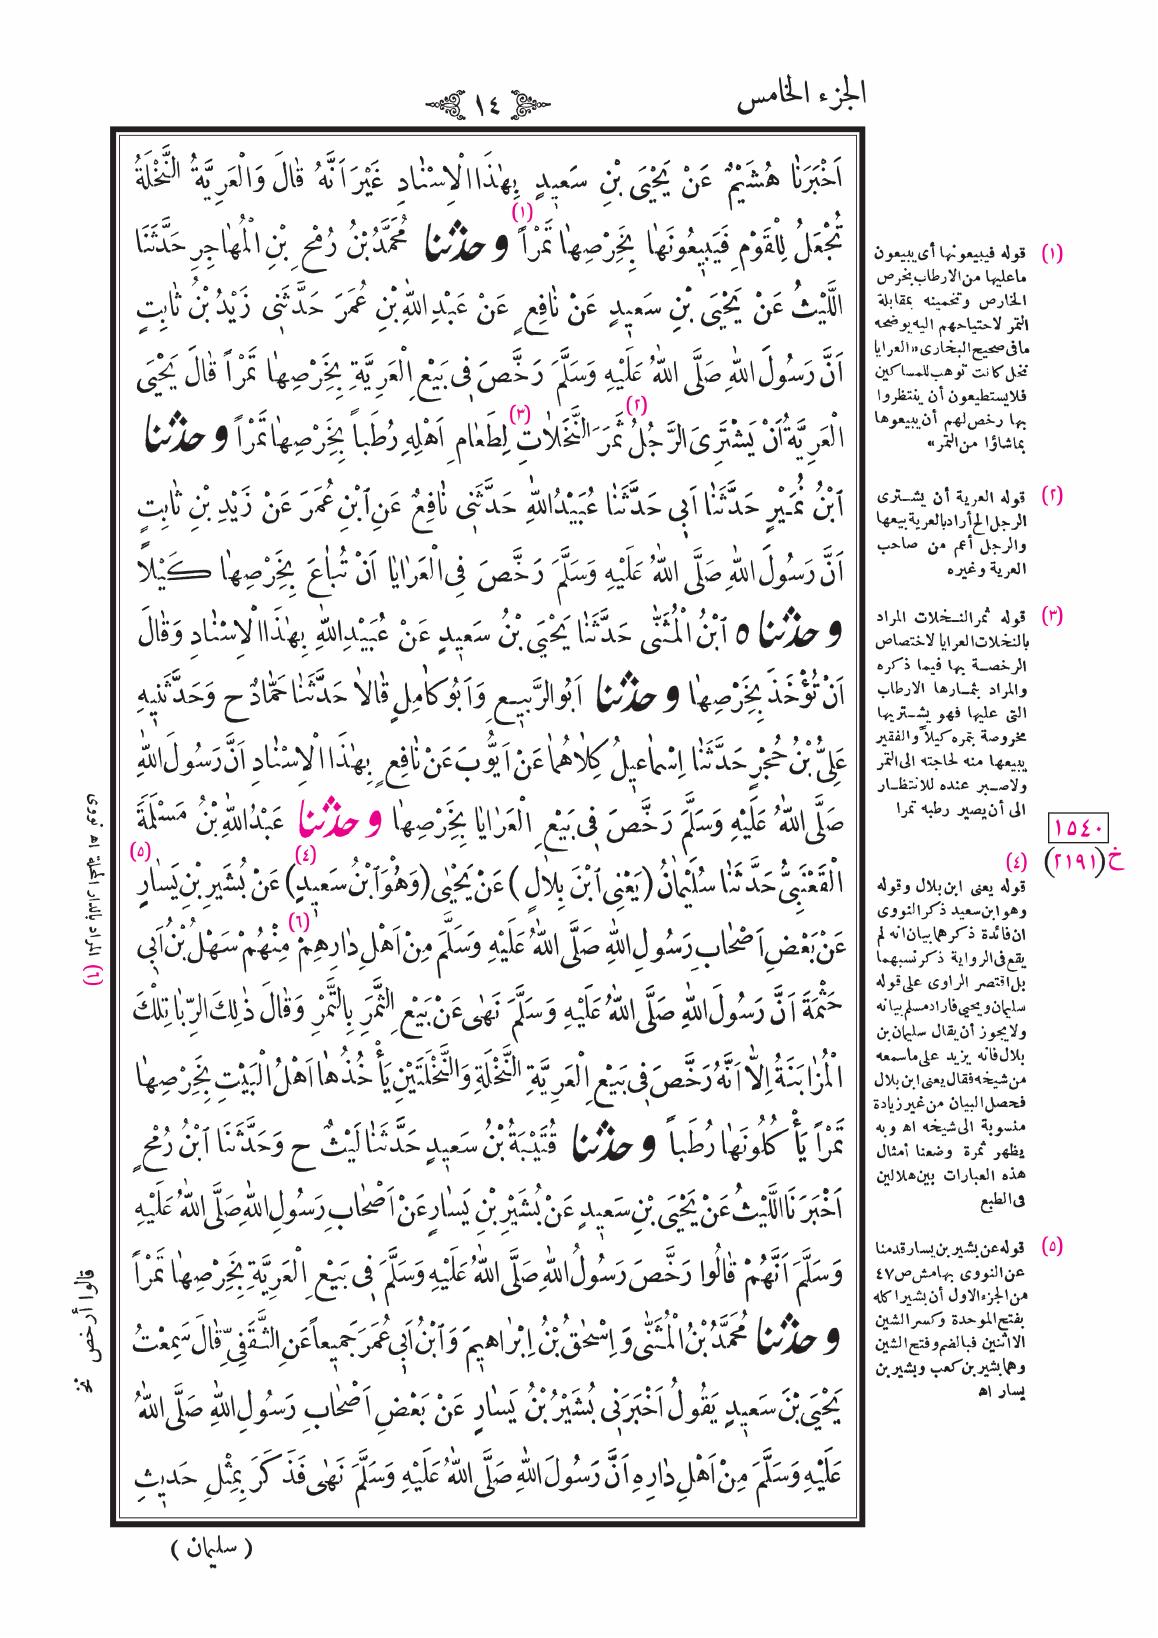 الجزء الخامس
١٤
اَخْبَرَنَا هُشَيْمٌ عَنْ يَحْيَى بْنِ سَعِيدٍ بِهٰذَا الْاِسْنَادِ غَيْرَ اَنَّهُ قَالَ وَالْعَرِيَّةُ النَّخْلَةُ
تُجْعَلُ لِلْقَوْمِ فَيَبِيعُونَهَا بِخَرْصِهَا تَمْراً (١) وحدثنا مُحَمَّدُ بْنُ رُمْحِ بْنِ الْمُهَاجِرِ حَدَّثَنَا
اللَّيْثُ عَنْ يَحْيَى بْنِ سَعِيدٍ عَنْ نَافِعٍ عَنْ عَبْدِ اللّٰهِ بْنِ عُمَرَ حَدَّثَنِى زَيْدُ بْنُ ثَابِتٍ
اَنَّ رَسُولَ اللّٰهِ صَلَّى اللّٰهُ عَلَيْهِ وَسَلَّمَ رَخَّصَ فِى بَيْعِ الْعَرِيَّةِ بِخَرْصِهَا تَمْراً قَالَ يَحْيَى
الْعَرِيَّةُ اَنْ يَشْتَرِىَ الرَّجُلُ (٢) ثَمَرَ النَّخَلَاتِ (٣) لِطَعَامِ اَهْلِهِ رُطَباً بِخَرْصِهَا تَمْراً وحدثنا
ابْنُ نُمَيْرٍ حَدَّثَنَا اَبِى حَدَّثَنَا عُبَيْدُ اللّٰهِ حَدَّثَنِى نَافِعٌ عَنِ ابْنِ عُمَرَ عَنْ زَيْدِ بْنِ ثَابِتٍ
اَنَّ رَسُولَ اللّٰهِ صَلَّى اللّٰهُ عَلَيْهِ وَسَلَّمَ رَخَّصَ فِى الْعَرَايَا اَنْ تُبَاعَ بِخَرْصِهَا كَيْلاً
وحدثنا ٥ ابْنُ الْمُثَنَّى حَدَّثَنَا يَحْيَى بْنُ سَعِيدٍ عَنْ عُبَيْدِ اللّٰهِ بِهٰذَا الْاِسْنَادِ وَقَالَ
اَنْ تُؤْخَذَ بِخَرْصِهَا وحدثنا اَبُو الرَّبِيعِ وَاَبُو كَامِلٍ قَالَا حَدَّثَنَا حَمَّادٌ ح وَحَدَّثَنِيهِ
عَلِىُّ بْنُ حُجْرٍ حَدَّثَنَا اِسْمَاعِيلُ كِلَاهُمَا عَنْ اَيُّوبَ عَنْ نَافِعٍ بِهٰذَا الْاِسْنَادِ اَنَّ رَسُولَ اللّٰهِ
صَلَّى اللّٰهُ عَلَيْهِ وَسَلَّمَ رَخَّصَ فِى بَيْعِ الْعَرَايَا بِخَرْصِهَا وحدثنا عَبْدُ اللّٰهِ بْنُ مَسْلَمَةَ
الْقَعْنَبِىُّ حَدَّثَنَا سُلَيْمَانُ (يَعْنِى ابْنَ بِلَالٍ) عَنْ يَحْيَى (وَهُوَ ابْنُ سَعِيدٍ) (٤) عَنْ بُشَيْرِ بْنِ يَسَارٍ (٥)
عَنْ بَعْضِ اَصْحَابِ رَسُولِ اللّٰهِ صَلَّى اللّٰهُ عَلَيْهِ وَسَلَّمَ مِنْ اَهْلِ دَارِهِمْ (٦) مِنْهُمْ سَهْلُ بْنُ اَبِى
حَثْمَةَ اَنَّ رَسُولَ اللّٰهِ صَلَّى اللّٰهُ عَلَيْهِ وَسَلَّمَ نَهَى عَنْ بَيْعِ الثَّمَرِ بِالتَّمْرِ وَقَالَ ذٰلِكَ الرِّبَا تِلْكَ
الْمُزَابَنَةُ اِلَّا اَنَّهُ رَخَّصَ فِى بَيْعِ الْعَرِيَّةِ النَّخْلَةِ وَالنَّخْلَتَيْنِ يَأْخُذُهَا اَهْلُ الْبَيْتِ بِخَرْصِهَا
تَمْراً يَأْكُلُونَهَا رُطَباً وحدثنا قُتَيْبَةُ بْنُ سَعِيدٍ حَدَّثَنَا لَيْثٌ ح وَحَدَّثَنَا ابْنُ رُمْحٍ
اَخْبَرَنَا اللَّيْثُ عَنْ يَحْيَى بْنِ سَعِيدٍ عَنْ بُشَيْرِ بْنِ يَسَارٍ عَنْ اَصْحَابِ رَسُولِ اللّٰهِ صَلَّى اللّٰهُ عَلَيْهِ
وَسَلَّمَ اَنَّهُمْ قَالُوا رَخَّصَ رَسُولُ اللّٰهِ صَلَّى اللّٰهُ عَلَيْهِ وَسَلَّمَ فِى بَيْعِ الْعَرِيَّةِ بِخَرْصِهَا تَمْراً
وحدثنا مُحَمَّدُ بْنُ الْمُثَنَّى وَاِسْحٰقُ بْنُ اِبْرَاهِيمَ وَابْنُ اَبِى عُمَرَ جَمِيعاً عَنِ الثَّقَفِىِّ قَالَ سَمِعْتُ
يَحْيَى بْنَ سَعِيدٍ يَقُولُ اَخْبَرَنِى بُشَيْرُ بْنُ يَسَارٍ عَنْ بَعْضِ اَصْحَابِ رَسُولِ اللّٰهِ صَلَّى اللّٰهُ
عَلَيْهِ وَسَلَّمَ مِنْ اَهْلِ دَارِهِ اَنَّ رَسُولَ اللّٰهِ صَلَّى اللّٰهُ عَلَيْهِ وَسَلَّمَ نَهَى فَذَكَرَ بِمِثْلِ حَدِيثِ
( سليمان )
(١) قوله فيبيعونها أى يبيعون
ما عليها من الارطاب بخرص
الخارص وتخمينه بمقابلة
التمر لاحتياجهم اليه يوضحه
ما فى صحيح البخارى «العرايا
نخل كانت توهب للمساكين
فلا يستطيعون أن ينتظروا
بها رخص لهم أن يبيعوها
بما شاؤا من التمر»
(٢) قوله العرية أن يشترى
الرجل الخ أراد بالعرية بيعها
والرجل أعم من صاحب
العرية وغيره
(٣) قوله ثمر النخلات المراد
بالنخلات العرايا لاختصاص
الرخصة بها فيما ذكره
والمراد بثمارها الارطاب
التى عليها فهو يشتريها
مخروصة بتمره كيلاً والفقير
يبيعها منه لحاجته الى التمر
ولا صبر عنده للانتظار
الى أن يصير رطبه تمرا
١٥٤٠
خ (٢١٩١)
(٤)
قوله يعنى ابن بلال وقوله
وهو ابن سعيد ذكر النووى
ان فائدة ذكرهما بيان انه لم
يقع فى الرواية ذكر نسبهما
بل اقتصر الراوى على قوله
سليمان ويحيى فاراد مسلم بيانه
ولا يجوز أن يقال سليمان بن
بلال فانه يزيد على ما سمعه
من شيخه فقال يعنى ابن بلال
فحصل البيان من غير زيادة
منسوبة الى شيخه اه وبه
يظهر ثمرة وضعنا أمثال
هذه العبارات بين هلالين
فى الطبع
(٥) قوله عن بشير بن يسار قدمنا
عن النووى بهامش ص ٤٧
من الجزء الاول أن بشيرا كله
بفتح الموحدة وكسر الشين
الا اثنين فبالضم وفتح الشين
وهما بشير بن كعب وبشير بن
يسار اه
(٦) المراد بالدار المحلة اه نووى
قالوا أرخص نخ